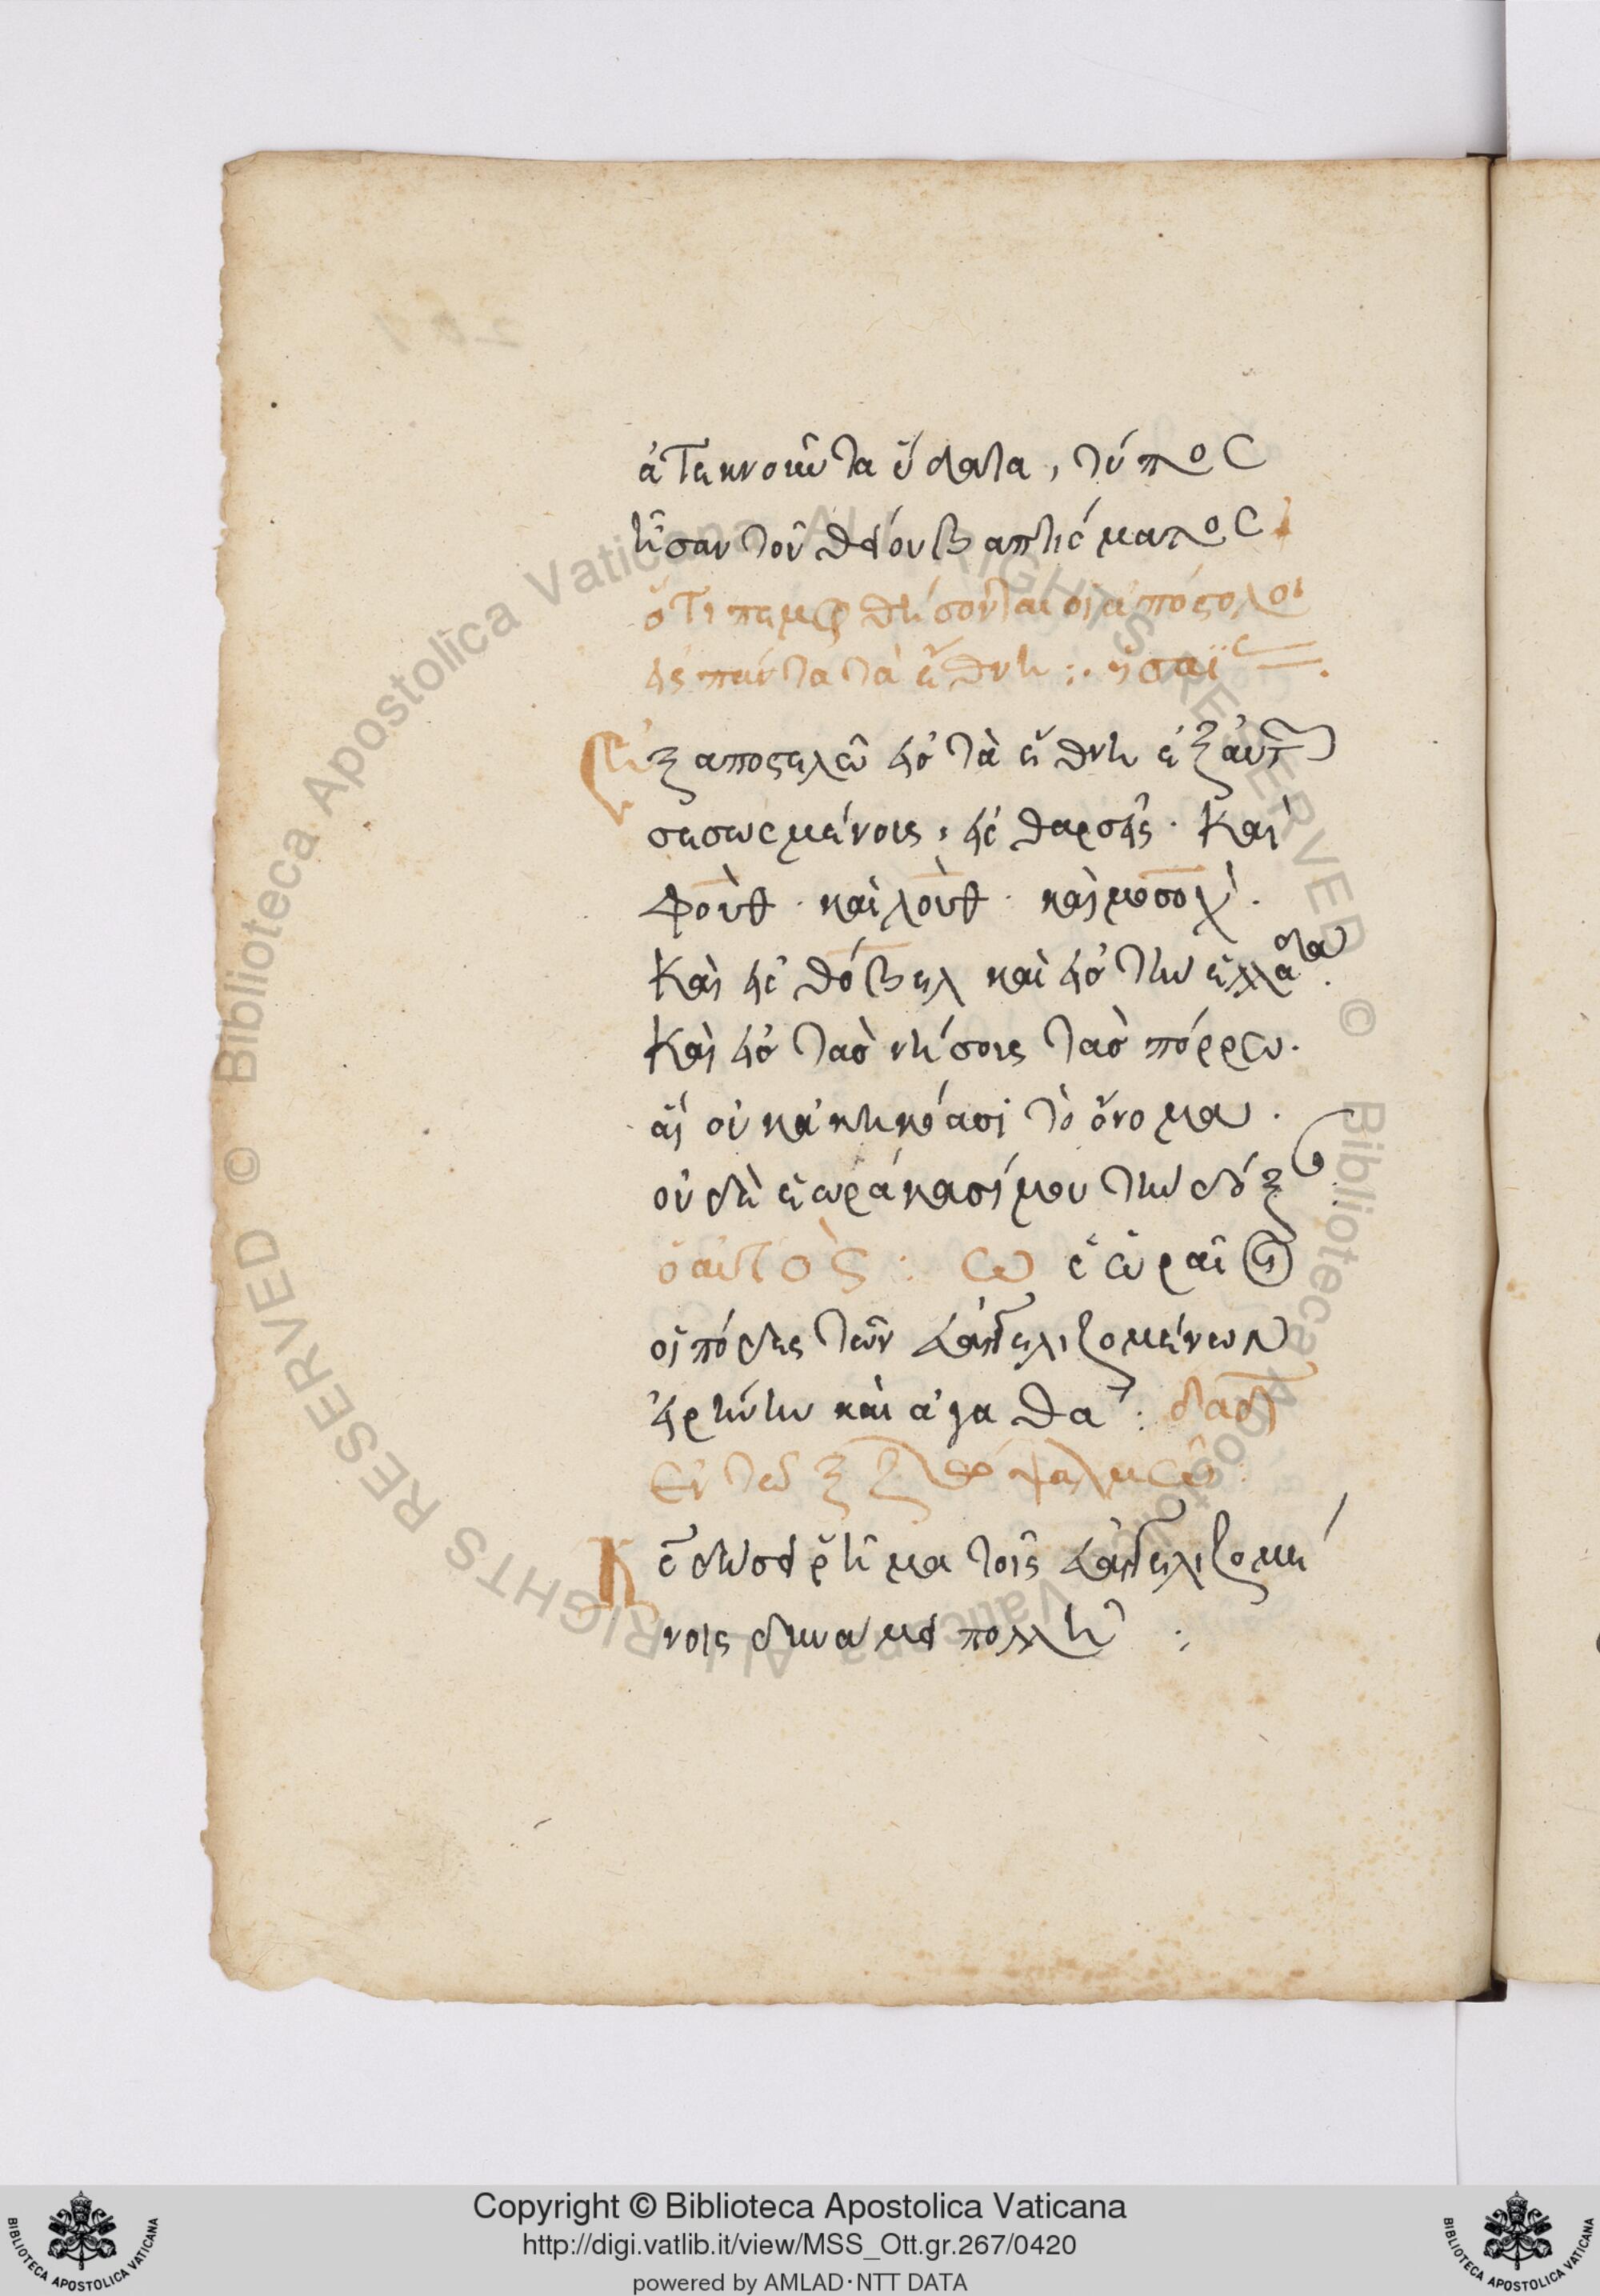 ἀτεκνοῦντα ὕδατα, τύπος
ἦσαν τοῦ θείου βαπτίσματος
ὅτι πεμφθήσονται οἱ ἀπόστολοι
εἰς πάντα τὰ ἔθνη :· ησαΐ
Ἐξαποστελῶ εἰς τὰ ἔθνη ἐξ αὐτ
σεσωσμένους, εἰς θαρσεῖς · Καὶ
Φοὺθ · καὶ λοὺθ · καὶ μοσὸχ ·
Καὶ εἰς θόβελ καὶ εἰς τὴν ελλάδα ·
Καὶ εἰς τὰς νήσους τὰς πόρρω ·
αἳ οὐκ ἀκηκόασι τὸ ὄνομα ·
οὐδὲ ἑωράκασί μου τὴν δόξ
ὁ αὐτὸς : Ὡς ὡραῖοι
οἱ πόδες τῶν εὐαγγελιζομένων
εἰρήνην καὶ ἀγαθά : δαδ
Ἐν τῶ ξζ ψαλμῶ :
Κς δώσει ῥῆμα τοῖς εὐαγγελιζομέ
νοις δυνάμει πολλῆ :
Copyright © Biblioteca Apostolica Vaticana
http://digi.vatlib.it/view/MSS_Ott.gr.267/0420
powered by AMLAD·NTT DATA
BIBLIOTECA APOSTOLICA VATICANA
BIBLIOTECA APOSTOLICA VATICANA
© Biblioteca Apostolica Vaticana ALL RIGHTS RESERVED
© Biblioteca Apostolica Vaticana ALL RIGHTS RESERVED